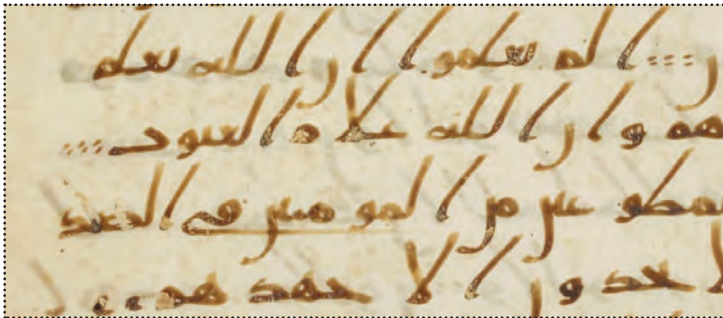 ن ا لم يعلموا ا ن ا لله يعلم
هم و ا ن ا لله علا م ا لغيوب
لمطو عين من ا لمو منين في ا لصد
لا يجد و ن ا لا جهد هم